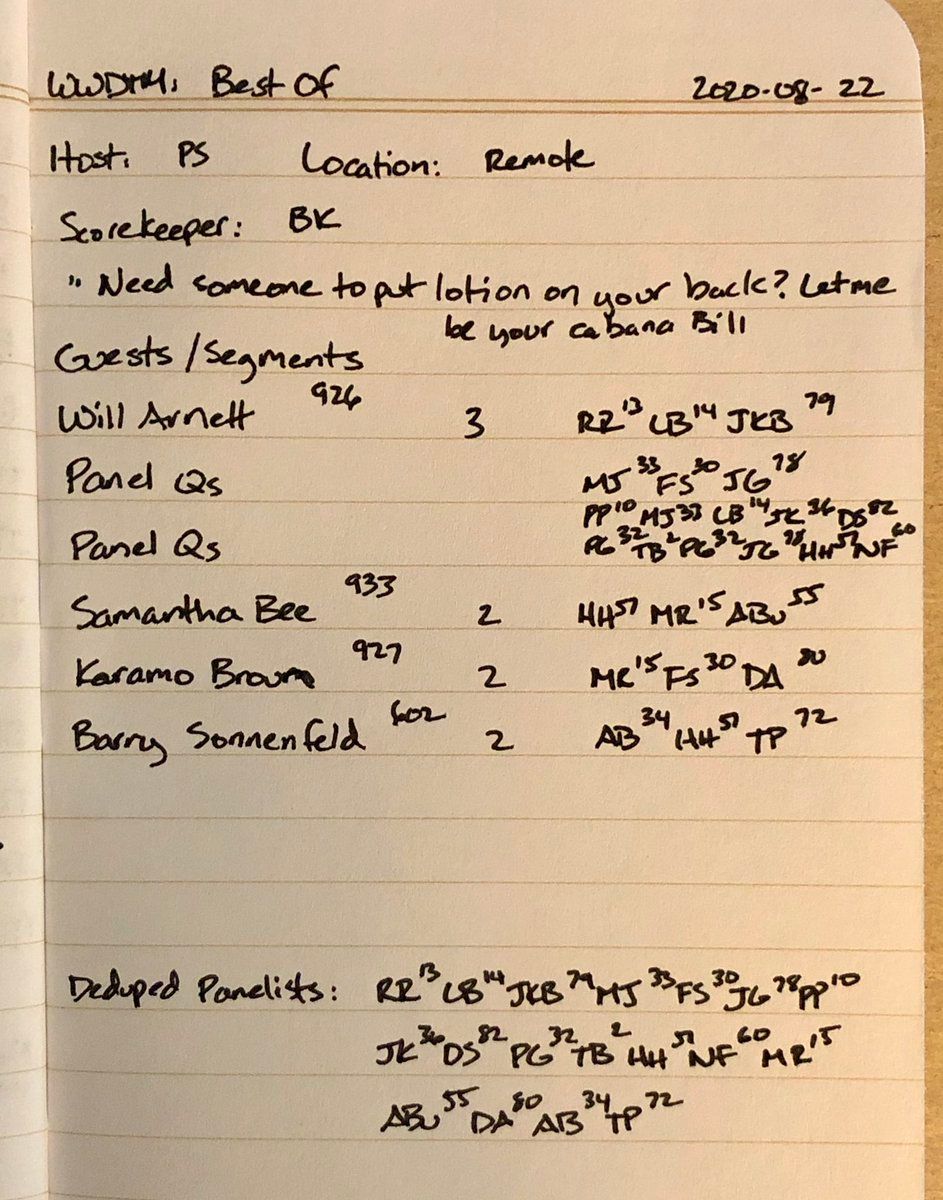 WWDTM: Best Of 2020-08-22
Host: PS Location: Remote
Scorekeeper: BK
" Need someone to put lotion on your back? Let me
be your cabana Bill
Guests/Segments
Will Arnett 926 3 RR13 LB14 JKB79
Panel Qs MJ33 FS30 JG78
PP10 MJ33 LB14 JK36 DS82
Panel Qs PG32 TB2 PG32 JG78 HH57 NF60
Samantha Bee 933 2 HH57 MR15 ABU55
Karamo Brown 927 2 MR15 FS30 DA80
Barry Sonnenfeld 602 2 AB34 HH57 TP72
Deduped Panelists: RR13 LB14 JKB79 MJ33 FS30 JG78 PP10
JK36 DS82 PG32 TB2 HH57 NF60 MR15
ABU55 DA80 AB34 TP72